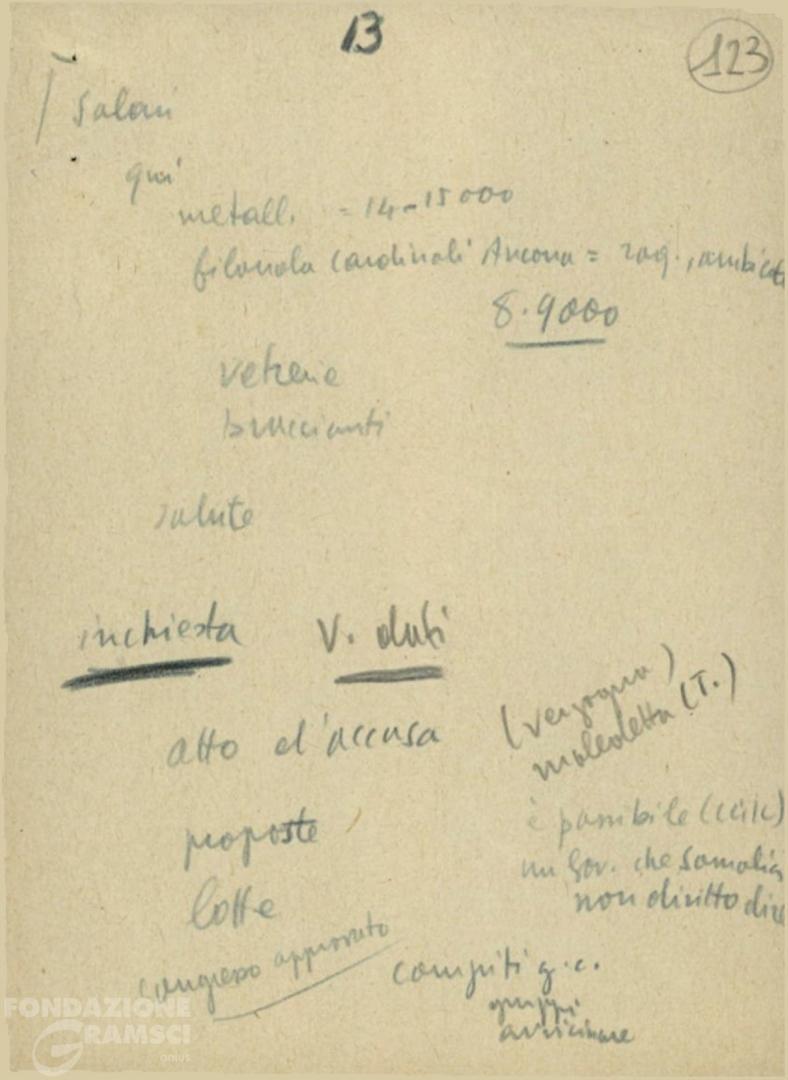 13
123
Salari
qui
metall. = 14-15000
filanda Cardinali Ancona = rag.,
8.9000
vetrerie
braccianti
salute
inchiesta V. dati
atto d'accusa
(vergogna)
maledetta (T.)
proposte
è possibile
un Gov. che Somalia
lotte
non diritto
congresso approvato
compiti g.c.
gruppi
avvicinare
FONDAZIONE
GRAMSCI
onlus